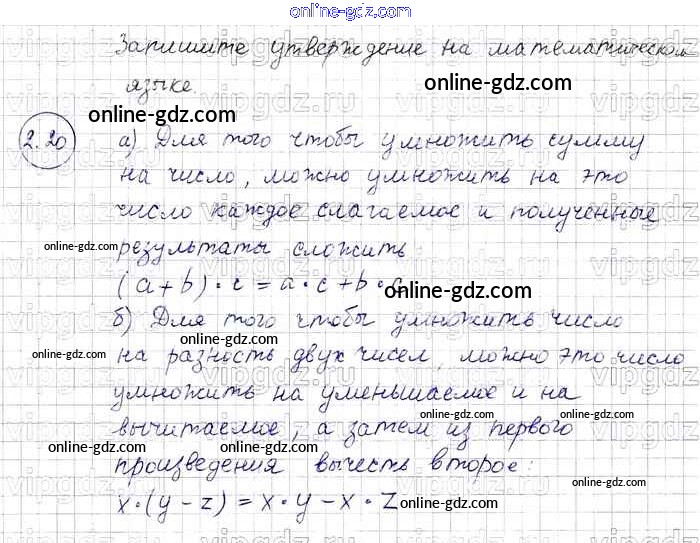 online-gdz.com
Запишите утверждение на математическом
языке.
online-gdz.com
online-gdz.com
2.20
а) Для того чтобы умножить сумму
на число, можно умножить на это
число каждое слагаемое и полученные
online-gdz.com
online-gdz.com
результаты сложить:
(a+b)·c = a·c+b·c
online-gdz.com
б) Для того чтобы умножить число
на разность двух чисел, можно это число
online-gdz.com
online-gdz.com
умножить на уменьшаемое и на
вычитаемое, а затем из первого
online-gdz.com
online-gdz.com
online-gdz.com
произведения вычесть второе:
x·(y-z) = x·y-x·z
online-gdz.com
online-gdz.com